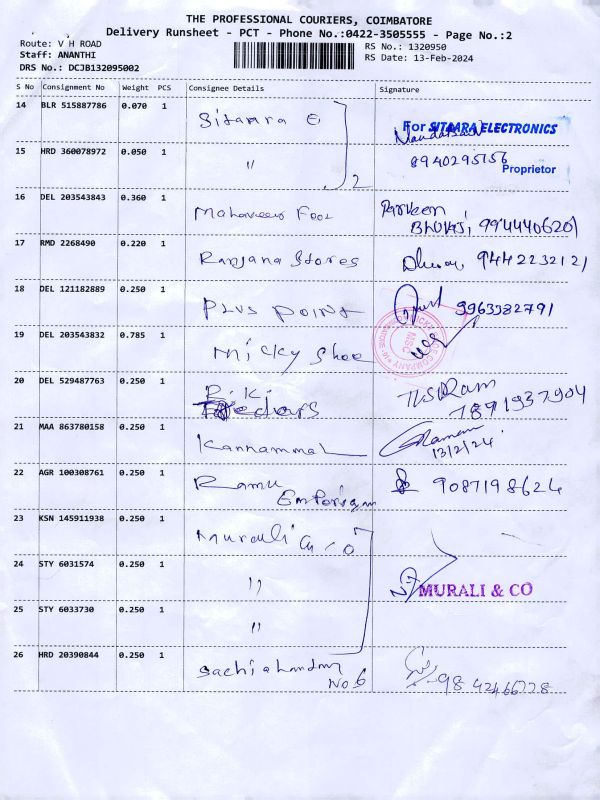 THE PROFESSIONAL COURIERS, COIMBATORE
Delivery Runsheet - PCT - Phone No.:0422-3505555 - Page No.:2
Route: V H ROAD
Staff: ANANTHI
DRS No.: DCJB132095002
RS No.: 1320950
RS Date: 13-Feb-2024
S No Consignment No Weight PCS Consignee Details Signature
14 BLR 515887786 0.070 1 Sitaara E For SITAARA ELECTRONICS
15 HRD 360078972 0.050 1 " 2 8940295156
Proprietor
16 DEL 203543843 0.360 1 Mahaveer Foot Parveen
BHUVAJ, 9944406201
17 RMD 2268490 0.220 1 Ranjana Stores 9442232121
18 DEL 121182889 0.250 1 PLUS POINT 9963382791
19 DEL 203543832 0.785 1 Micky Shoe
20 DEL 529487763 0.250 1 Riki
7891937904
21 MAA 863780158 0.250 1 Kannammal
13/2/24
22 AGR 100308761 0.250 1 Ramu
Emporium 9087198624
23 KSN 145911938 0.250 1 Murali & Co
24 STY 6031574 0.250 1 " MURALI & CO
25 STY 6033730 0.250 1 "
26 HRD 20390844 0.250 1
No 6 9842466728